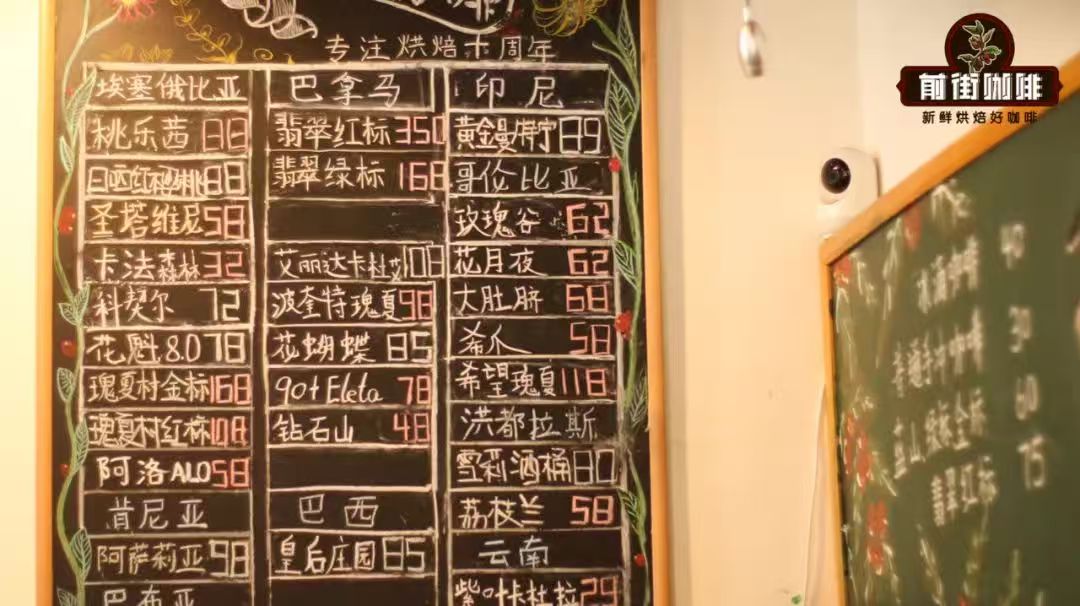 专注烘焙十周年
埃塞俄比亚
桃乐茜 88
日晒红樱桃 88
圣塔维尼 58
卡法森林 32
科契尔 72
花魁8.0 78
瑰夏村金标 168
瑰夏村红标 108
阿洛ALO 58
肯尼亚
阿萨莉亚 98
巴布亚
巴拿马
翡翠红标 350
翡翠绿标 168
艾丽达卡杜艾 108
波奎特瑰夏 98
花蝴蝶 85
90+Eleta 78
钻石山 48
巴西
皇后庄园 85
印尼
黄金曼特宁 89
哥伦比亚
玫瑰谷 62
花月夜 62
大肚脐 68
希爪 58
希望瑰夏 118
洪都拉斯
雪莉酒桶 80
荔枝兰 58
云南
紫叶卡杜拉 29
前街咖啡
新鲜烘焙好咖啡
冰滴咖啡 40
普通手冲咖啡 30
蓝山 金标 60
翡翠红标 75